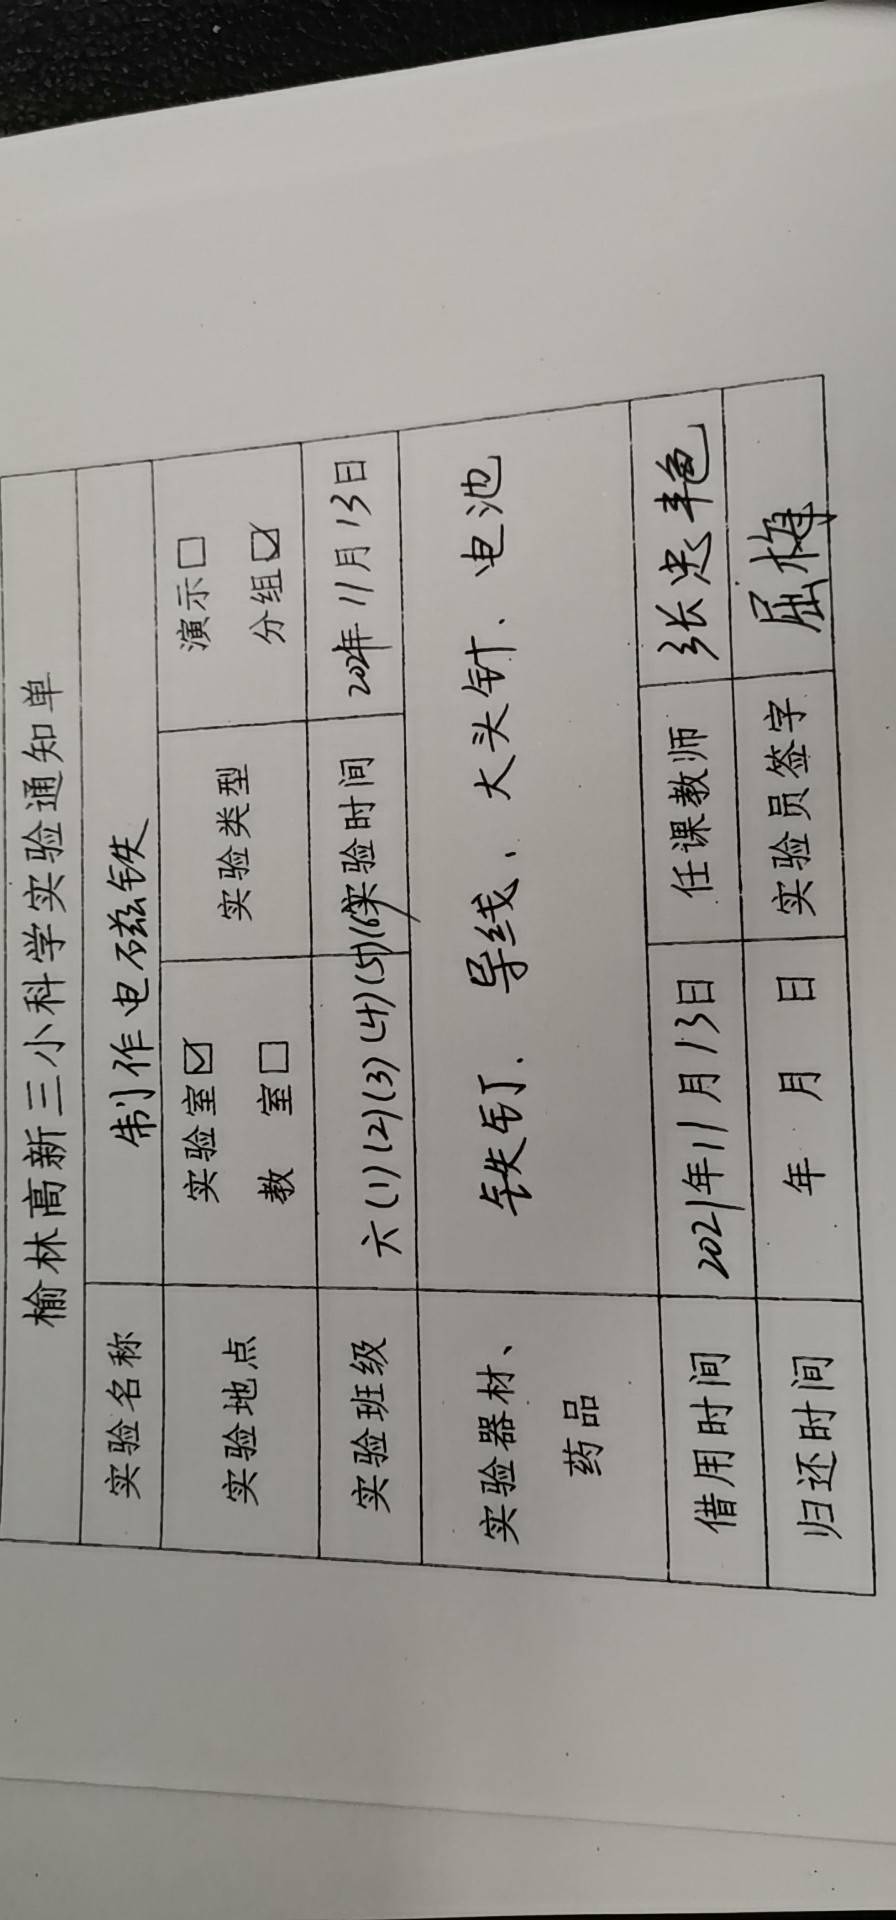 榆林高新三小科学实验通知单
实验名称 制作电磁铁
实验地点 实验室☑ 教 室□ 实验类型 演示□ 分组☑
实验班级 六(1)(2)(3)(4)(5)(6) 实验时间 2021年11月13日
实验器材、药品 铁钉、导线、大头针、电池
借用时间 2021年11月13日 任课教师 张忠艳
归还时间 年 月 日 实验员签字 屈梅